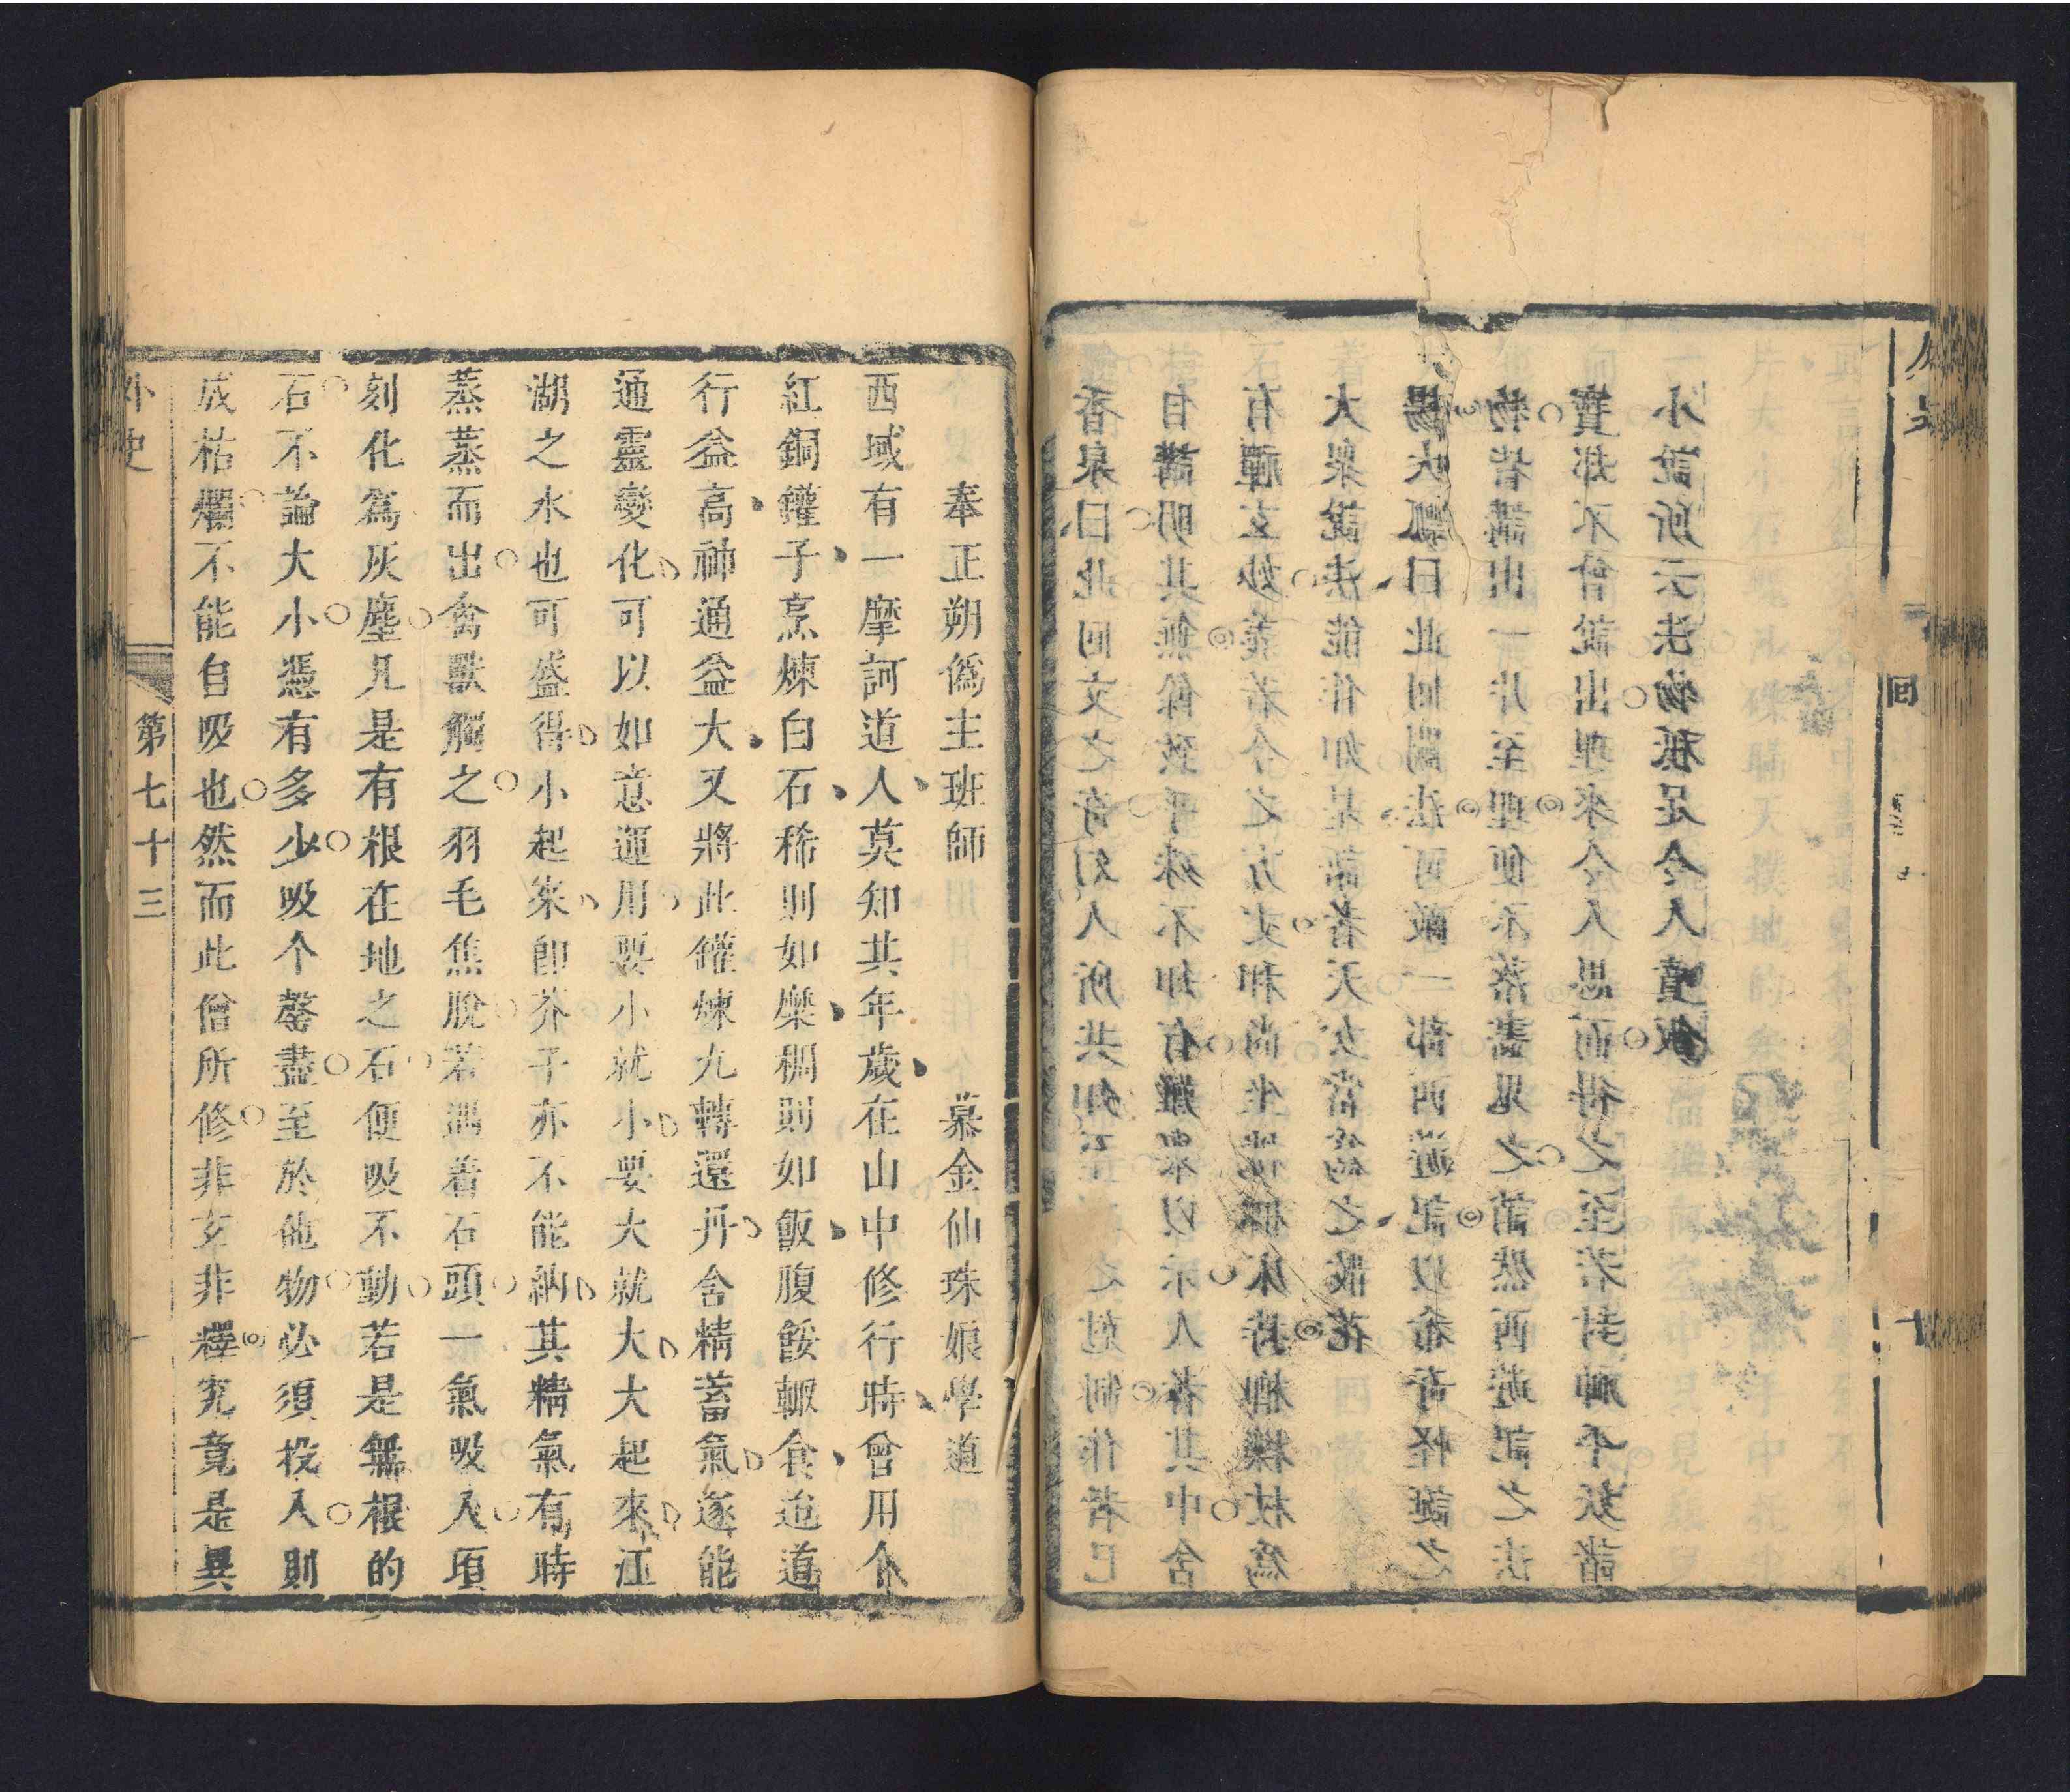 香泉曰此回文之奇幻人所共知至之刻作者已
自講明其無餘致乎殊不知有難畢以示人者其中含
有禪玄妙義若今之方丈和尚坐床持杖為
大衆說法能作如是語者天女當為之散花
楊大瓢曰此回鬬法可敵一部西遊記以希奇怪誕之
物皆講出一片至理便不落畫鬼之誚然西遊記之法
寶却不曾說出理來令人思而得之至若封神平妖諸
小說所云法物秪足令人噴飯
奉正朔僞主班師　慕金仙珠娘學道
西域有一摩訶道人莫知其年歲在山中修行時曾用个
紅銅鑵子烹煉白石稀則如糜稠則如飯腹餒輙食迨道
行益高神通益大又將此鑵煉九轉還丹含精蓄氣遂能
通靈變化可以如意運用要小就小要大就大大起來江
湖之水也可盛得小起來卽芥子亦不能納其精氣有時
蒸蒸而出禽獸觸之羽毛焦脫若遇着石頭一氣吸入頃
刻化爲灰塵凡是有根在地之石便吸不動若是無根的
石不論大小憑有多少吸个罄盡至於他物必須投入則
成枯爛不能自吸也然而此僧所修非玄非釋究竟是異
外史
第七十三